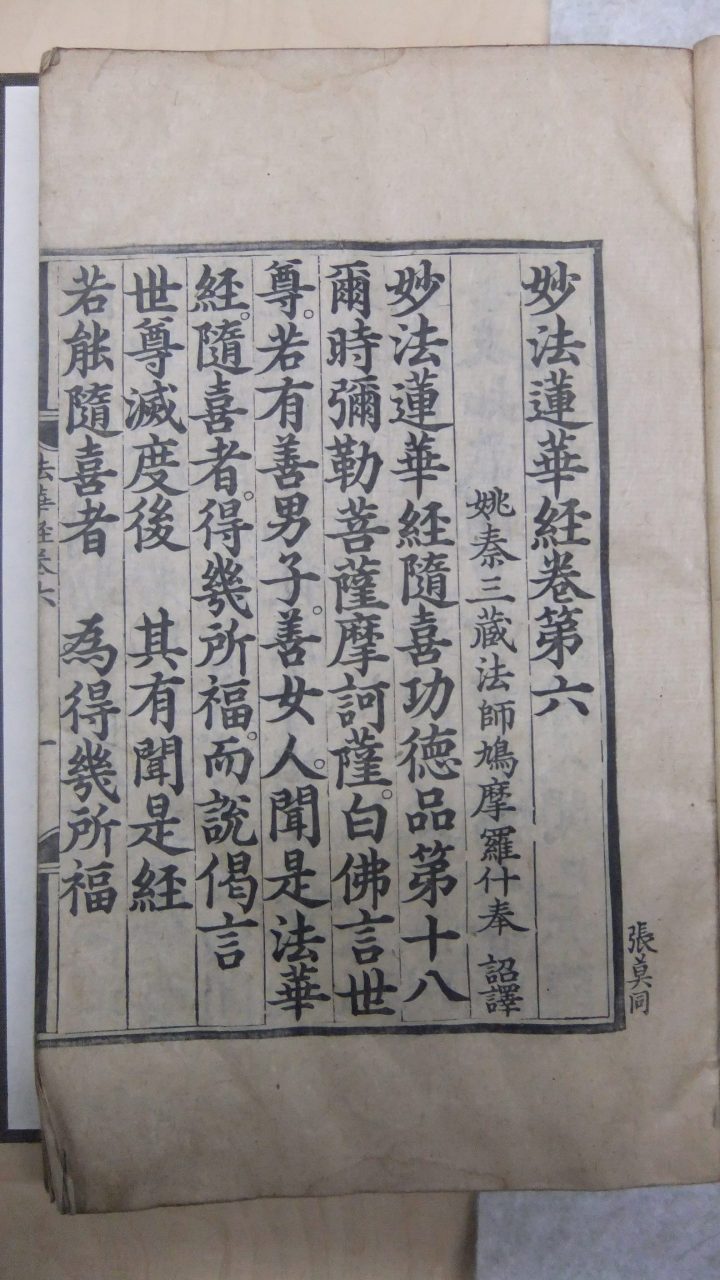 張莫同
妙法蓮華経卷第六
姚秦三藏法師鳩摩羅什奉 詔譯
妙法蓮華経隨喜功德品第十八
爾時彌勒菩薩摩訶薩。白佛言世
尊。若有善男子。善女人。聞是法華
経。隨喜者。得幾所福。而說偈言
世尊滅度後 其有聞是経
若能隨喜者 為得幾所福
法華経卷六 一